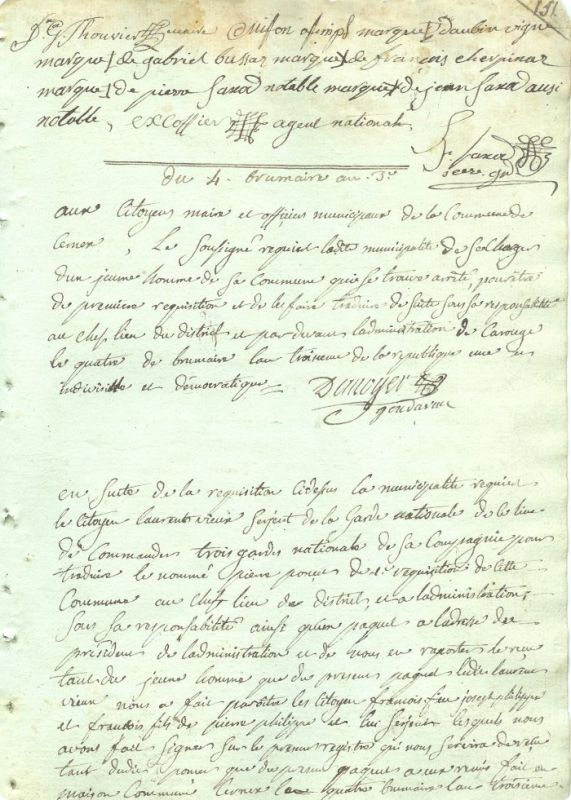 151
maire Misson ofimpl marque d'aubin vigne
marque de gabriel bussaz marque de françois cherpinaz
marque de pierre saxod notable marque de jean saxod ausi
notable, excoffier agent national
J. saxod
secre. gr.
du 4 brumaire an 3e
aux Citoyens maire et officiers municipaux de la Commune de
Cernex, Le Sousigné requiert ladte municipalité de se charger
dun jeune homme de sa Commune qui se trouve arrêté, pour être
de premiere requisition et de le faire traduire de suite sous sa responsabilité
au chef lieu du district et par devant ladministration de Carouge
le quatre de brumaire lan troisieme de la republique une et
indivisible et démocratique
Denoyer
gendarme
en suite de la requisition cidessus la municipalité requiert
le citoyen laurent vieux serjent de la Garde nationale de ce lieu
de Commander trois gardes nationale de sa Compagnie pour
traduire le nommé pierre poncet de 1e requisition de cette
Commune au chef lieu du district, et a ladministration,
sous sa responsabilité ainsi qu'un paquet a ladresse du
président de ladministration et de nous en raporter le recu
tant du jeune homme que du present paquet ledit laurent
vieux nous a fait paroitre les citoyen francois feu joseph philippe
et francois fils de pierre philippe et lui serjent lesquels nous
avons fait signer sur le present registre qui nous servira de recu
tant dudit poncet que du present paquet a eux remis fait en
maison Commune Cernex le quatre brumaire lan troisieme